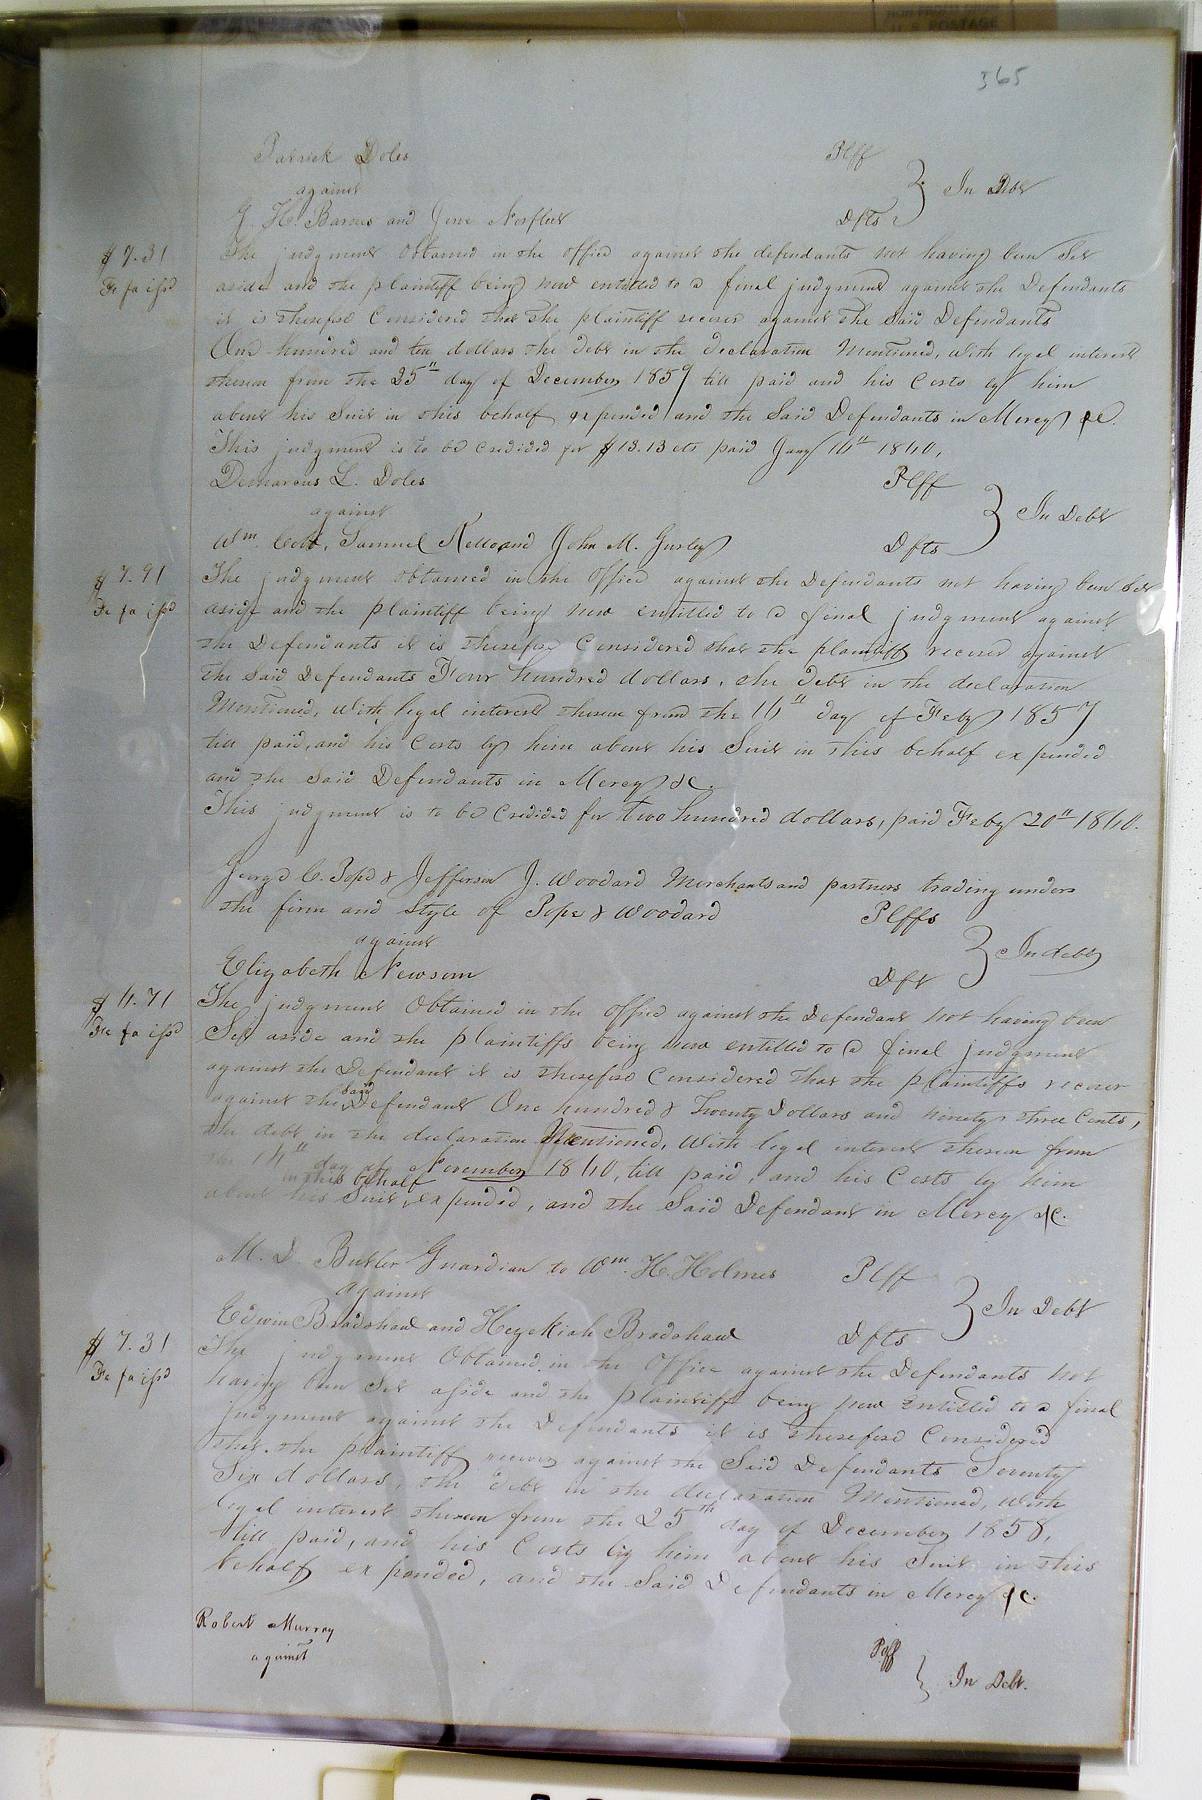 365
Patrick Doles Plff
against In Debt
J. H. Barnes and Jesse Norfleet Dfts
$7.31 The judgment obtained in the office against the defendants not having been Set
Fi fa issd aside and the plaintiff being now entitled to a final judgment against the Defendants
it is therefore Considered that the plaintiff recover against the Said Defendants
One hundred and ten dollars the debt in the declaration Mentioned, with legal interest
thereon from the 25th day of December 1859 till paid and his Costs by him
about his Suit in this behalf expended and the Said Defendants in Mercy &c.
This judgment is to be credited for $13.13 cts paid Jany 16th 1860,
Demarcus L. Doles Plff
against In Debt
Wm. Cobb, Samuel Kello and John M. Gurley Dfts
$7.91 The judgment obtained in the Office against the Defendants not having been Set
Fi fa issd aside and the plaintiff being now entitled to a final judgment against
the Defendants it is therefore Considered that the plaintiff recover against
the Said Defendants Four hundred dollars, the debt in the declaration
Mentioned, with legal interest thereon from the 16th day of Feby 1857
till paid, and his Costs by him about his Suit in this behalf expended
and the Said Defendants in Mercy &c.
This judgment is to be Credited for two hundred dollars, paid Feby 20th 1860.
George C. Pope & Jefferson J. Woodard Merchants and partners trading under
the firm and Style of Pope & Woodard Plffs
against In debt
Elizabeth Newsom Dft
$6.71 The judgment Obtained in the office against the Defendant not having been
Fi fa issd Set aside and the plaintiffs being now entitled to a final judgment
against the Defendant it is therefore Considered that the plaintiffs recover
against the Said Defendant One hundred & Twenty Dollars and ninety three Cents,
the debt in the declaration Mentioned, with legal interest thereon from
the 14th day of November 1860, till paid, and his Costs by him
about his Suit in this behalf expended, and the Said Defendant in Mercy &c.
M. D. Butler Guardian to Wm. H. Holmes Plff
against In Debt
Edwin Bradshaw and Hezekiah Bradshaw Dfts
$7.31 The judgment Obtained in the Office against the Defendants not
Fi fa issd having been Set aside and the plaintiff being now entitled to a final
judgment against the Defendants it is therefore Considered
that the plaintiff recover against the Said Defendants Seventy
Six dollars, the debt in the declaration Mentioned, with
legal interest thereon from the 25th day of December 1858,
till paid, and his Costs by him about his Suit in this
behalf expended, and the Said Defendants in Mercy &c.
Robert Murray Plff
against In Debt.